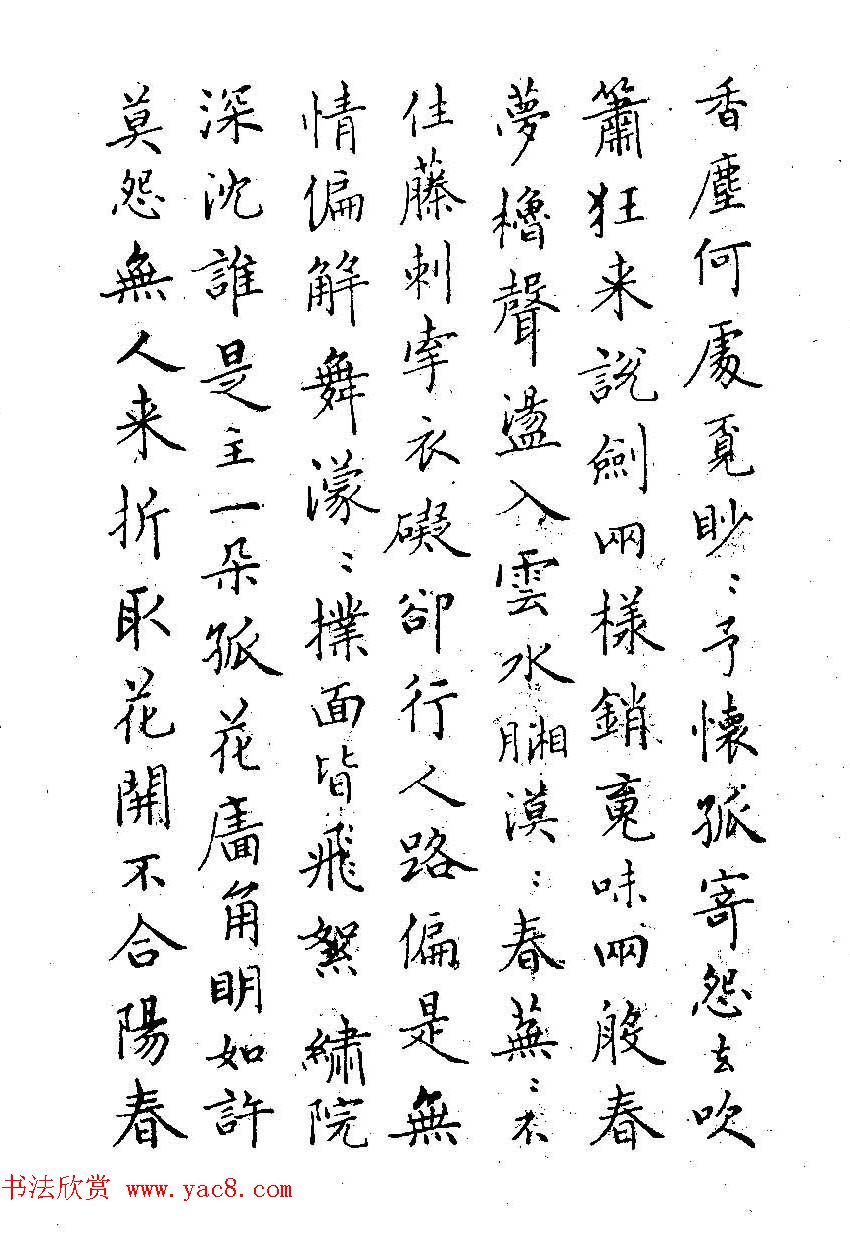 香塵何處覓眇〻予懷孤寄怨去吹
簫狂来説劍兩様銷䰟味兩般春
夢櫓聲盪入雲水湘漠〻春蕪〻不
住藤刺牽衣礙卻行人路偏是無
情偏解舞濛〻撲面皆飛絮繡院
深沈誰是主一朵孤花牆角明如許
莫怨無人来折取花開不合陽春
书法欣赏 www.yac8.com